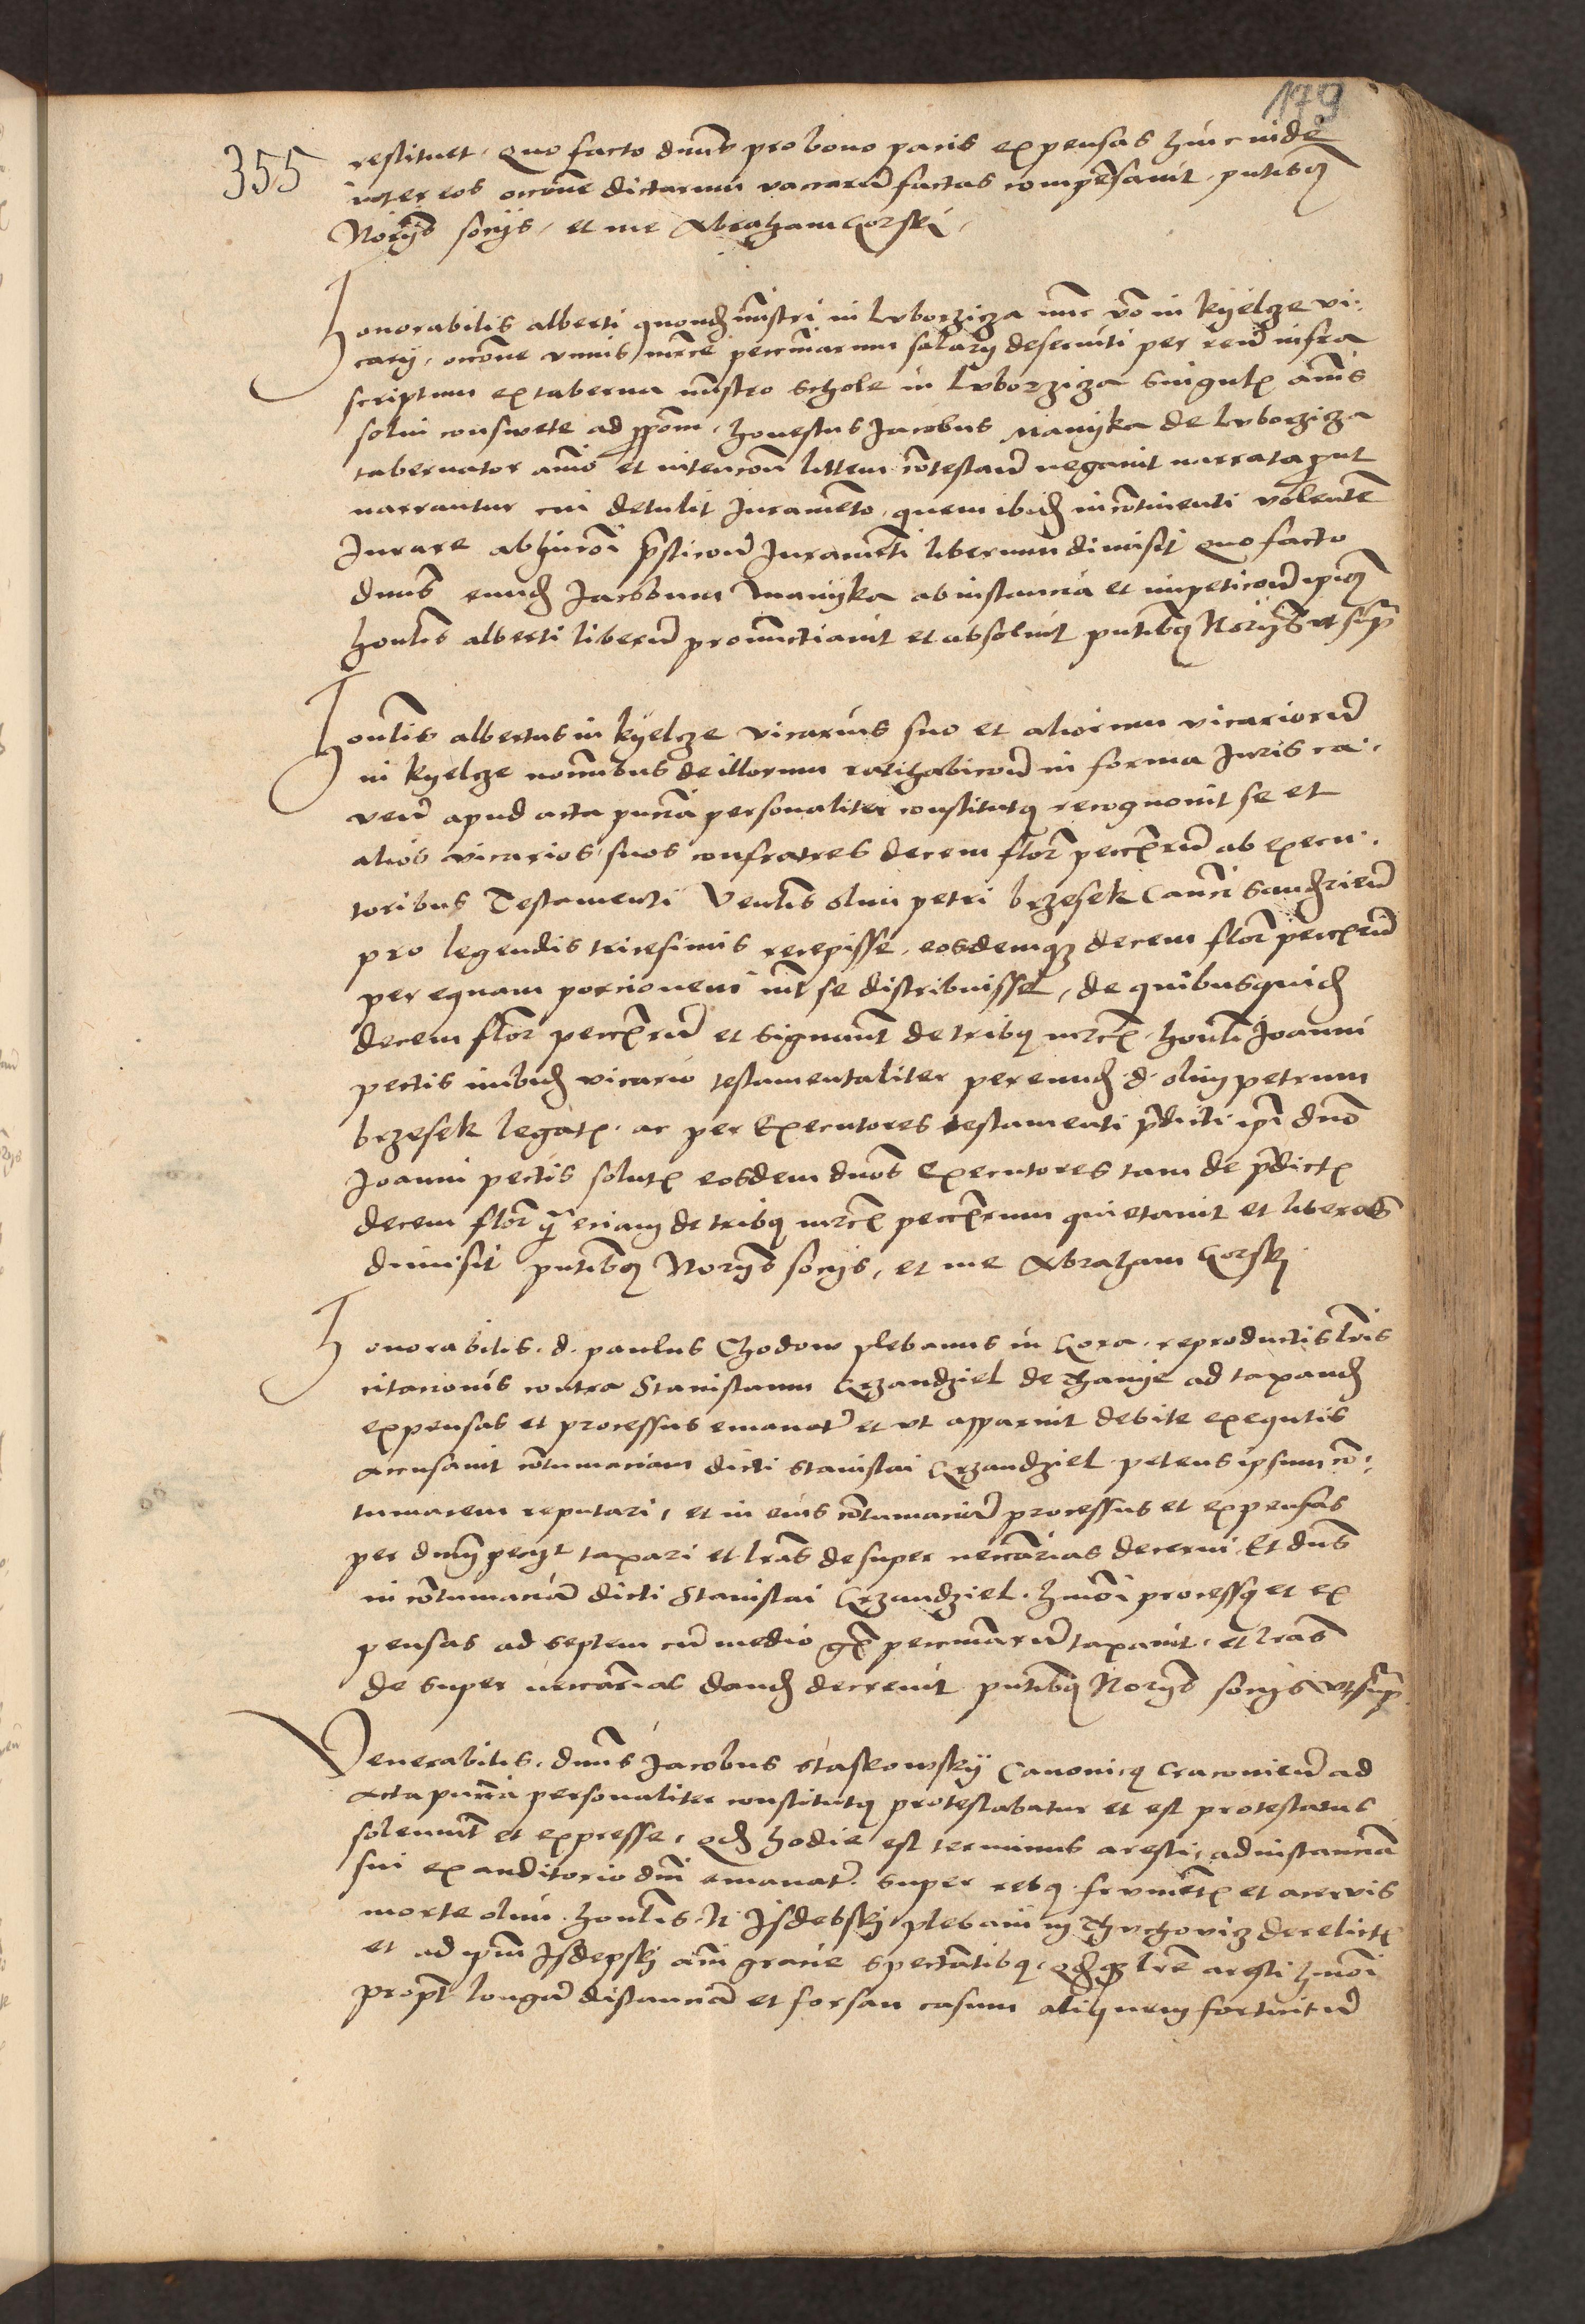 179
355
restituet. Quo facto dnus pro bono pacis expensas hincinde
inter eos occone dictarum vaccarum factas compensavit. pntibus
Norijs socijs, et me Abraham Gorski,
Honorabilis alberti quond mistri in Luborzicza nunc vo in kyelcze vi:
carij, occone unius mrce pecuniarum salarij deserviti per reum infra
scriptum ex taberna mistro schole in Luborzicza singulis annis
solvi consuete ad pposom. honestus Jacobus Manyka de Luborzicza
tabernator animo et intencone littem contestand negavit narrata put
narrantur cui detulit Juramento, quem ibid incontinenti volente
Jurare ab huiusmoi pstacone Juramenti liberum dimisit Quo facto
dnus eund Jacobum Manyka ab instancia et impeticone ipius
honlis alberti liberum pronunctiavit et absolvit pntibus Norijs ut supra
Honlis albertus in kyelcze vicarius suo et aliorum vicariorum
in kyelcze nominibus de illorum ratihabicone in forma Juris ca:
vens apud acta pncia personaliter constitutus recognovit se et
alios vicarios suos confratres decem flor peccuniarum ab execu:
toribus Testamenti Venlis olim petri brzesek Canci Sandziem
pro legendis tricesimis recepisse, eosdemque decem flor peccuniarum
per equam porcionem inter se distribuisse, de quibusquid
decem flor peccuniarum et signant de tribus mrcis honli Joanni
pectis inibid vicario testamentaliter per eund d. olim petrum
brzesek legatis. ac per Executores testamenti pdicti ipi dno
Joanni pectis solutis eosdem dnos Executores tam de pdictis
decem flor q eciam de tribus mrcis peccuniarum quietavit et liberos
dimisit pntibus Norijs socijs, et me Abraham Gorski
Honorabilis. d. paulus Chodow plebanus in Gora. reproductis lris
citacionis contra Stanislaum Grzandziel de Thanije ad taxand
expensas et processus emanat et ut apparuit debite exequtis
accusavit contumaciam dicti stanislai Grzandziel. petens ipsum con:
tumacem reputari, et in eius contumaciam processus et expensas
per dnum pecijt taxari et lras desuper necrias decerni Et dnus
in contumaciam dicti Stanislai Grzandziel. hmoi processus et ex
pensas ad septem cum medio gr peccuniarum taxavit, et lras
de super necrias dand decrevit pntibus Norijs socijs ut supra
Venerabilis. dnus Jacobus Staskowskij Canonicus Cracovien ad
acta pncia personaliter constitutus protestabatur et est protestatus
solennit et expresse, qd hodie est terminus aresti, ad instanciam
sui ex auditorio dni emanat. super rebus. frumentis et acervis
morte olim. honlis. N Isdebskij plebani in Thuchovicz derelictis
et ad ipm Isdepskij anni gracie spectantibus, lre aresti hmoi
propt longam distanciam et forsan casum aliquem fortuitum